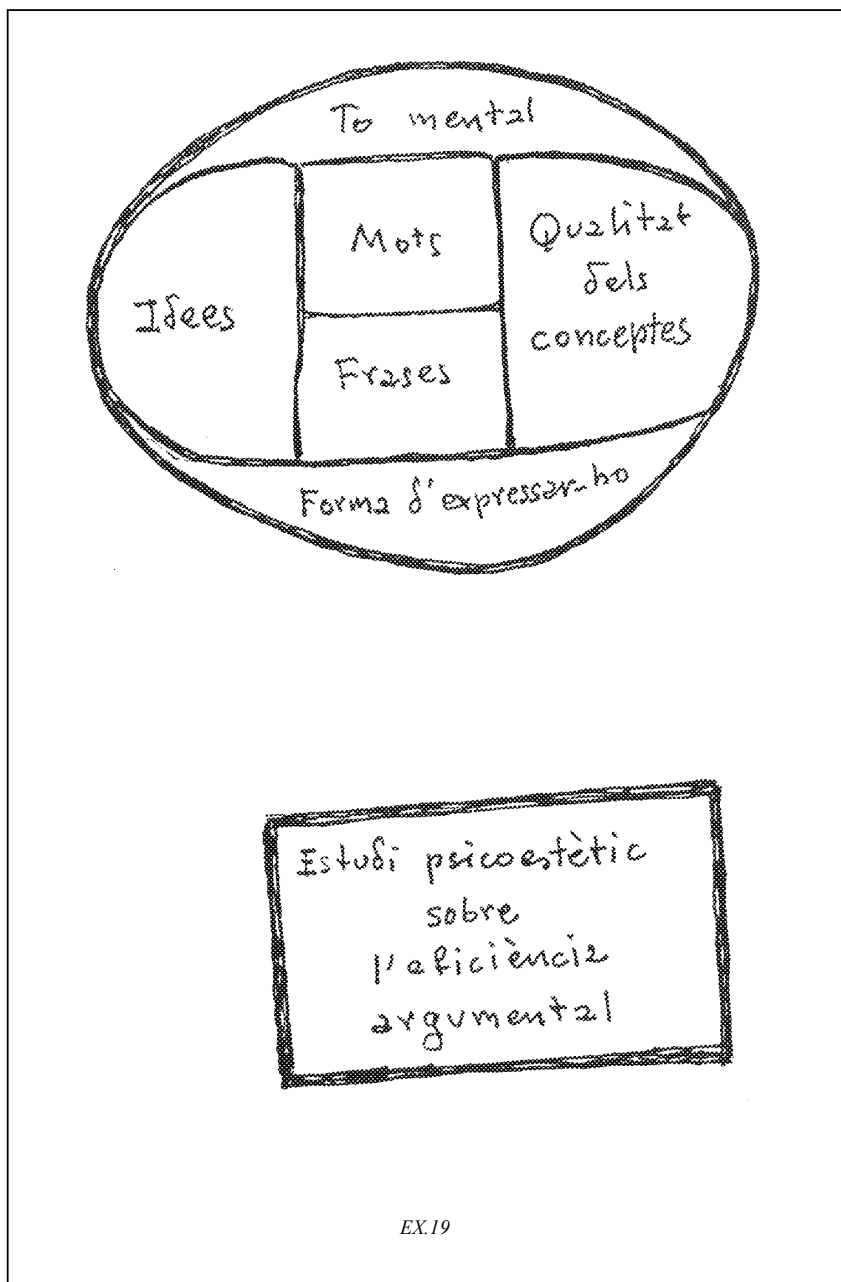 To mental
Idees
Mots
Frases
Qualitat
dels
conceptes
Forma d'expressar-ho
Estudi psicoestètic
sobre
l'eficiència
argumental
EX.19